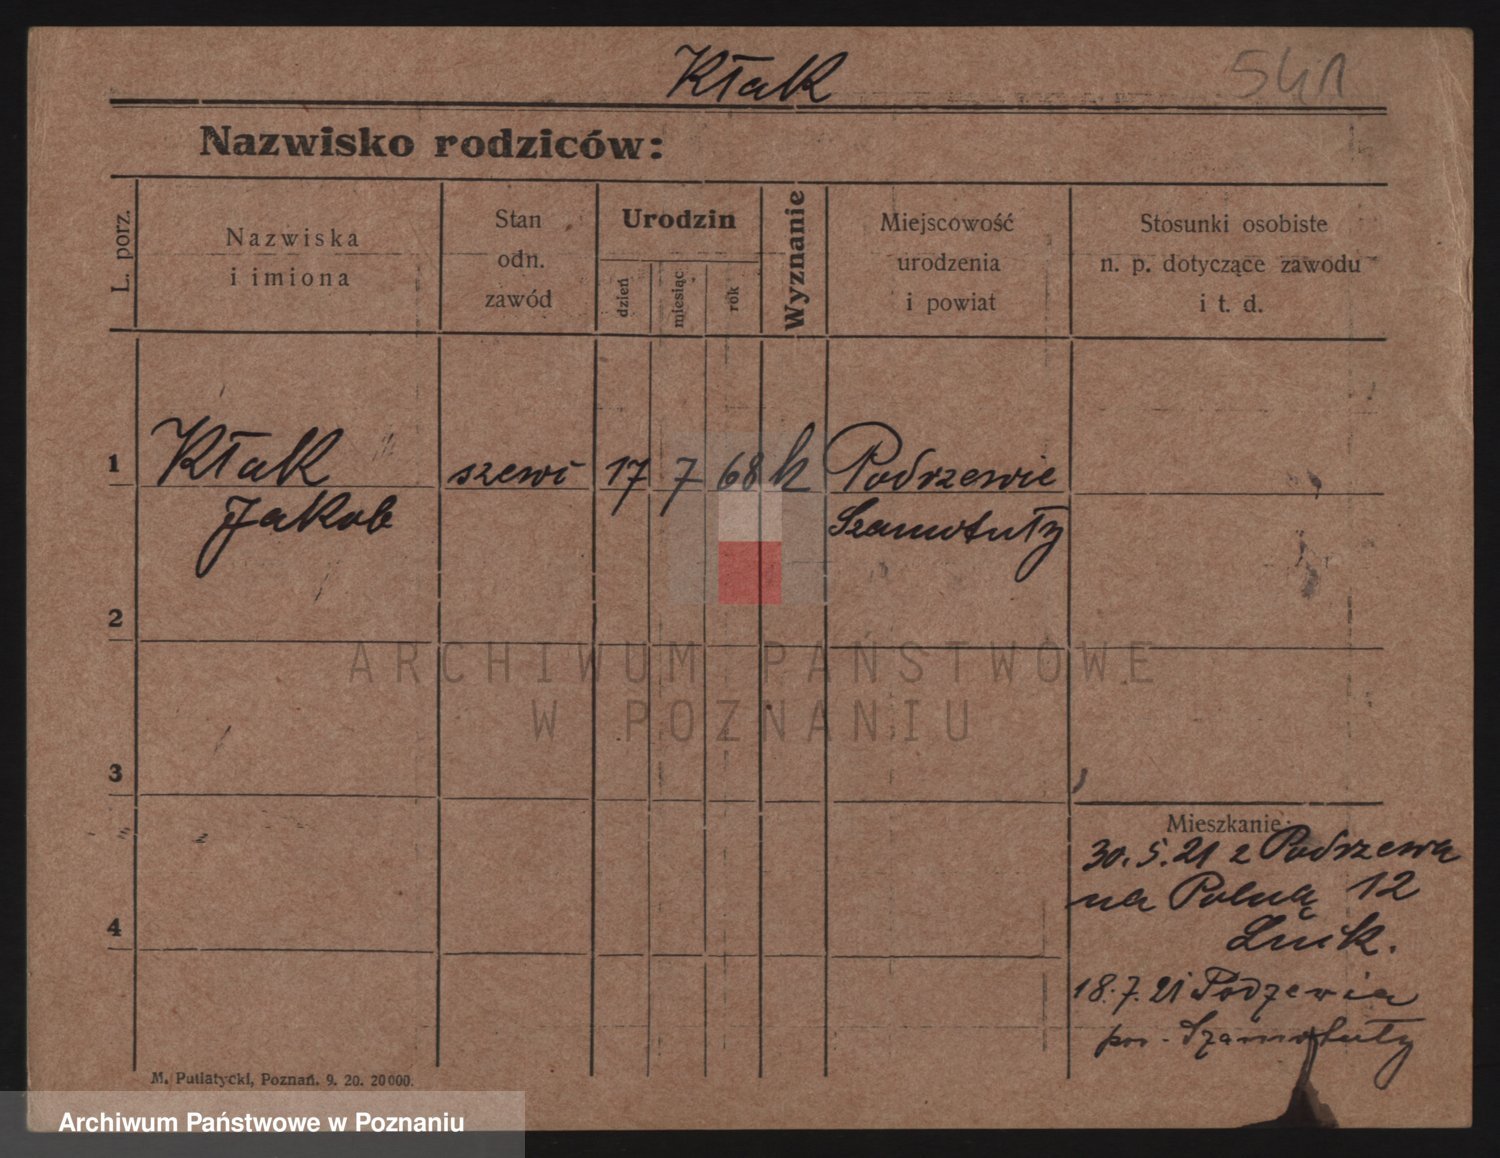 Kłak
541
Nazwisko rodziców:
L. porz.
Nazwiska
i imiona
Stan
odn.
zawód
Urodzin
dzień
miesiąc
rok
Wyznanie
Miejscowość
urodzenia
i powiat
Stosunki osobiste
n. p. dotyczące zawodu
i t. d.
1 Kłak szewc 17 7 68 k Podrzewie
Jakob Szamotuły
2
ARCHIWUM PAŃSTWOWE
W POZNANIU
3
Mieszkanie:
30. 5. 21 z Podrzewa
na Polną 12
4
18. 7. 21 Podzewia
pow. Szamotuły
M. Putiatycki, Poznań. 9. 20. 20000.
Archiwum Państwowe w Poznaniu